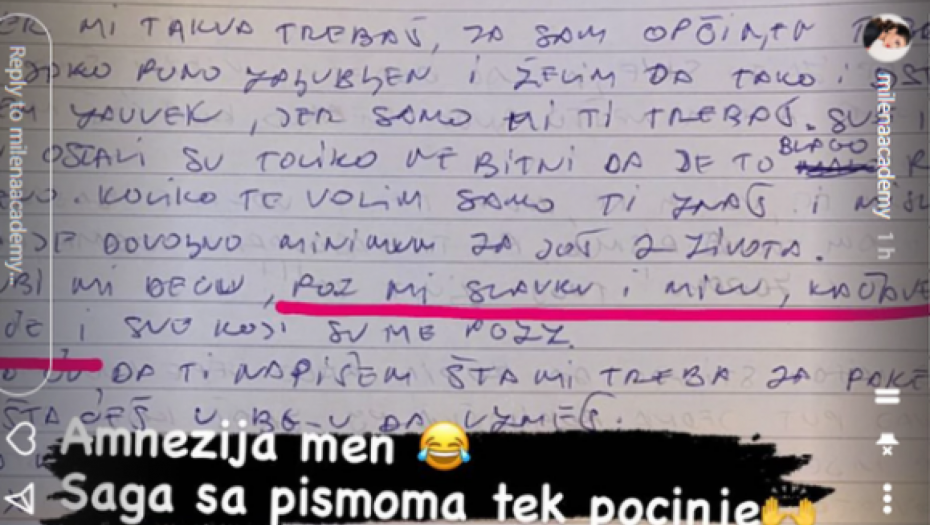 MI TAKVA TREBAŠ, JA SAM OPČINJEN
PUNO ZALJUBLJEN I ŽELIM DA TAKO I
ZAUVEK, JER SAMO MI TI TREBAŠ. SVI
OSTALI SU TOLIKO NEBITNI DA JE TO BLAGO
KOLIKO TE VOLIM SAMO TI ZNAŠ I
JE DOVOLJNO MINIMUM ZA JOŠ 2 ŽIVOTA.
MI DECU, POZ MI SLAVKU I MICU,
I SVE KOJI SU ME POZZ.
DA TI NAPIŠEM ŠTA MI TREBA ZA
ŠTA ĆEŠ U BG-U DA UZMEŠ.
Amnezija men 😂
Saga sa pismoma tek pocinje🙌
Reply to milenaacademy...
milenaacademy 1 h